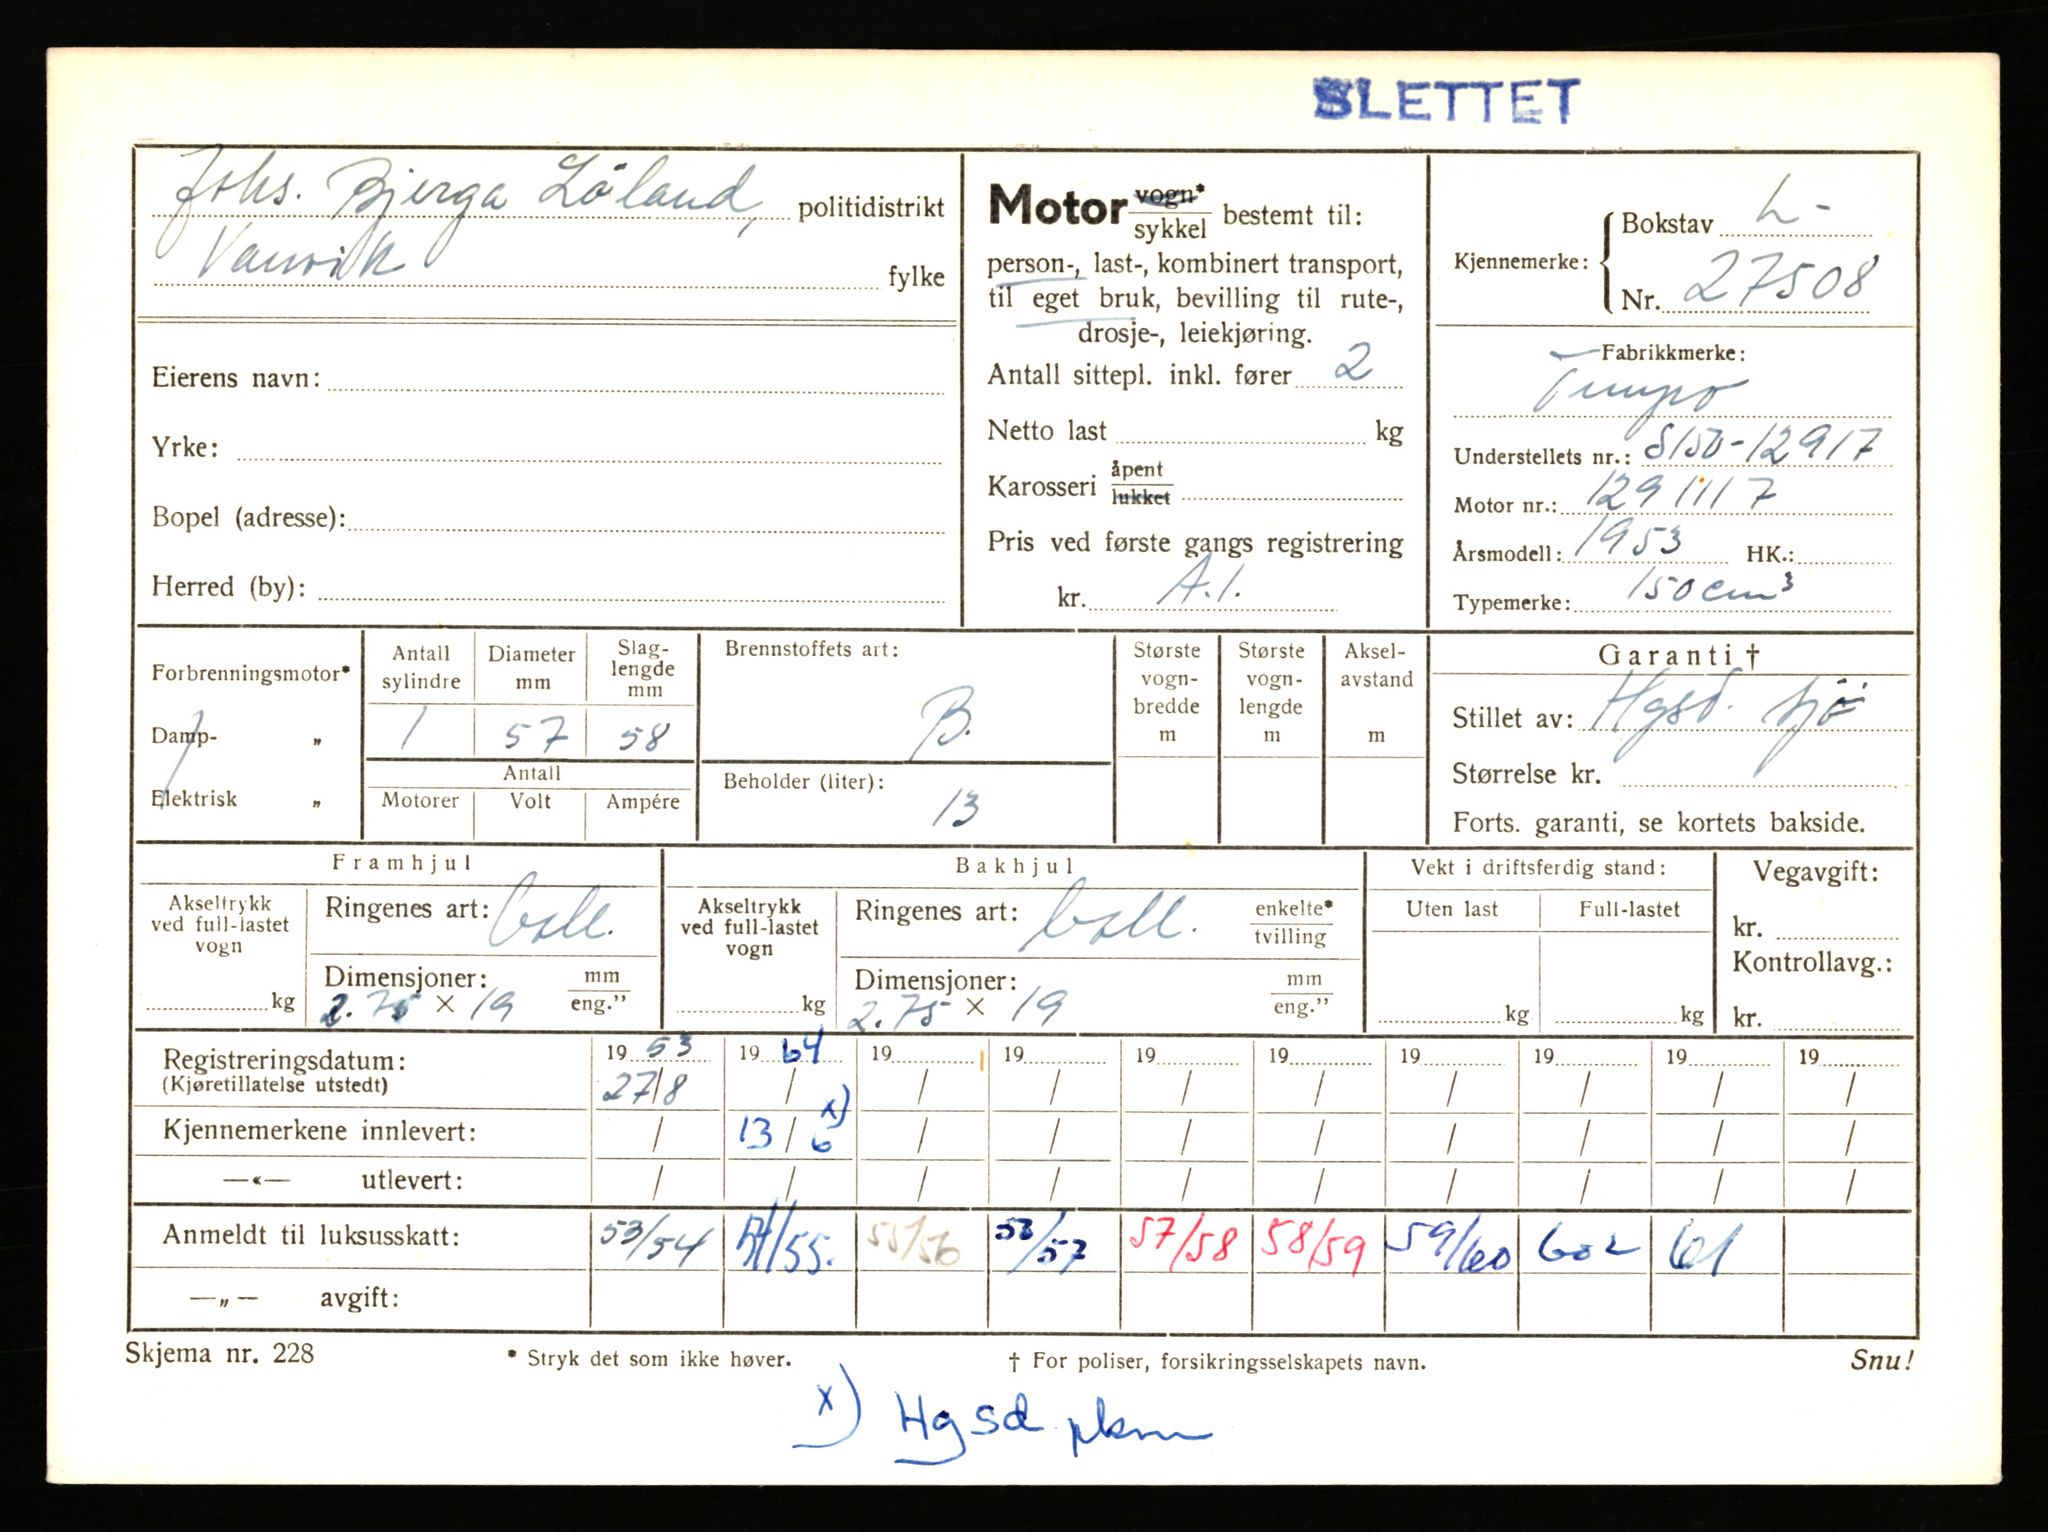 SLETTET
Johs. Bjerga Löland, politidistrikt
Vanvik fylke
Eierens navn:
Yrke:
Bopel (adresse):
Herred (by):
Motor vogn* / sykkel bestemt til:
person-, last-, kombinert transport,
til eget bruk, bevilling til rute-,
drosje-, leiekjøring.
Antall sittepl. inkl. fører 2
Netto last kg
Karosseri åpent / lukket
Pris ved første gangs registrering
kr. A.1.
Kjennemerke: Bokstav L-
Nr. 27508
Fabrikkmerke:
Tempo
Understellets nr.: S150-12917
Motor nr.: 1291117
Årsmodell: 1953 HK.:
Typemerke: 150 cm³
Forbrenningsmotor*
Damp- „
Elektrisk „
Antall sylindre Diameter mm Slag-lengde mm
1 57 58
Antall
Motorer Volt Ampére
Brennstoffets art:
B.
Beholder (liter):
13
Største vogn-bredde m
Største vogn-lengde m
Aksel-avstand m
Garanti †
Stillet av: Hgsd. sjö
Størrelse kr.
Forts. garanti, se kortets bakside.
Framhjul
Akseltrykk ved full-lastet vogn
kg
Ringenes art:
Dimensjoner: mm / eng."
2.75 × 19
Bakhjul
Akseltrykk ved full-lastet vogn
kg
Ringenes art: enkelte* / tvilling
Dimensjoner: mm / eng."
2.75 × 19
Vekt i driftsferdig stand:
Uten last Full-lastet
kg kg
Vegavgift:
kr.
Kontrollavg.:
kr.
Registreringsdatum: 1953 1964 19 19 19 19 19 19 19 19
(Kjøretillatelse utstedt) 27/8 / / / / / / / / /
Kjennemerkene innlevert: / 13/6 x) / / / / / / / /
—«— utlevert: / / / / / / / / / /
Anmeldt til luksusskatt: 53/54 54/55. 55/56 /57 57/58 58/59 59/60 602 61
—„— avgift:
Skjema nr. 228 * Stryk det som ikke høver. † For poliser, forsikringsselskapets navn. Snu!
x) Hgsd pkm